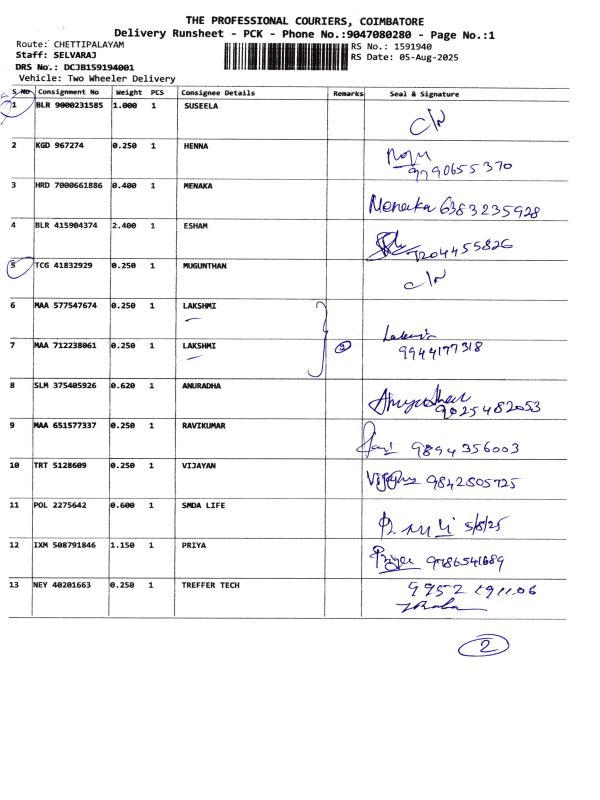 THE PROFESSIONAL COURIERS, COIMBATORE
Delivery Runsheet - PCK - Phone No.:9047080280 - Page No.:1
Route: CHETTIPALAYAM RS No.: 1591940
Staff: SELVARAJ RS Date: 05-Aug-2025
DRS No.: DCJB159194001
Vehicle: Two Wheeler Delivery
S.No Consignment No Weight PCS Consignee Details Remarks Seal & Signature
1 BLR 9000231585 1.000 1 SUSEELA
2 KGD 967274 0.250 1 HENNA
9790655370
3 HRD 7000661886 0.400 1 MENAKA Menaka 6383235928
4 BLR 415904374 2.400 1 ESHAM
7204455826
5 TCG 41832929 0.250 1 MUGUNTHAN
6 MAA 577547674 0.250 1 LAKSHMI
7 MAA 712238061 0.250 1 LAKSHMI 2 9944177318
8 SLM 375405926 0.620 1 ANURADHA
9025482053
9 MAA 651577337 0.250 1 RAVIKUMAR
9894356003
10 TRT 5128609 0.250 1 VIJAYAN 9842805725
11 POL 2275642 0.600 1 SMDA LIFE
5/8/25
12 IXM 508791846 1.150 1 PRIYA 9786541689
13 NEY 40201663 0.250 1 TREFFER TECH
2